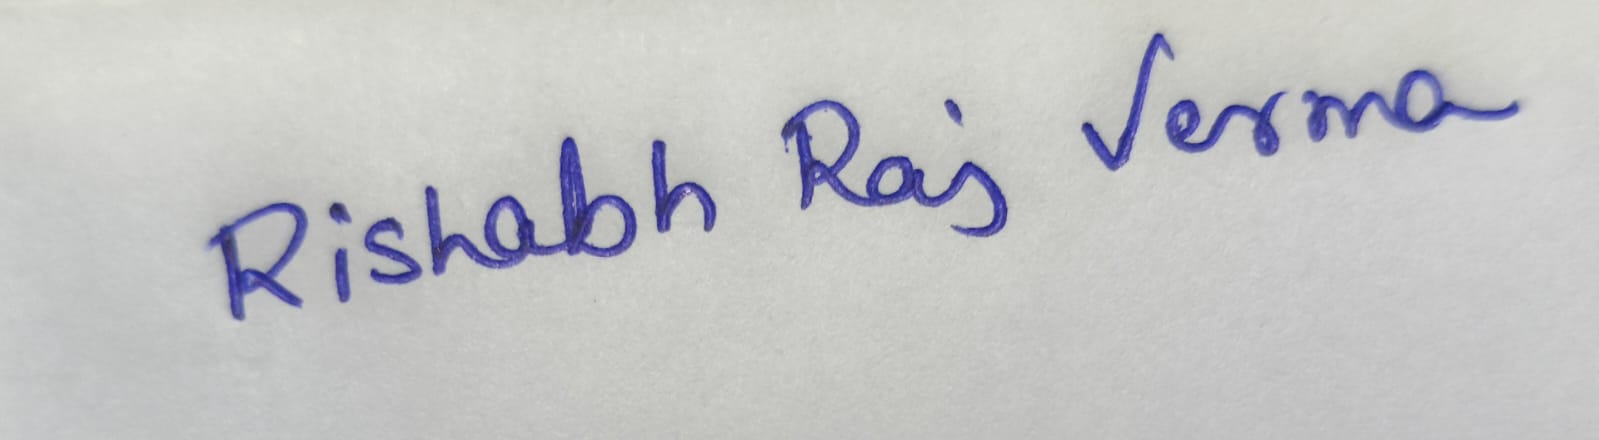 Rishabh Raj Verma